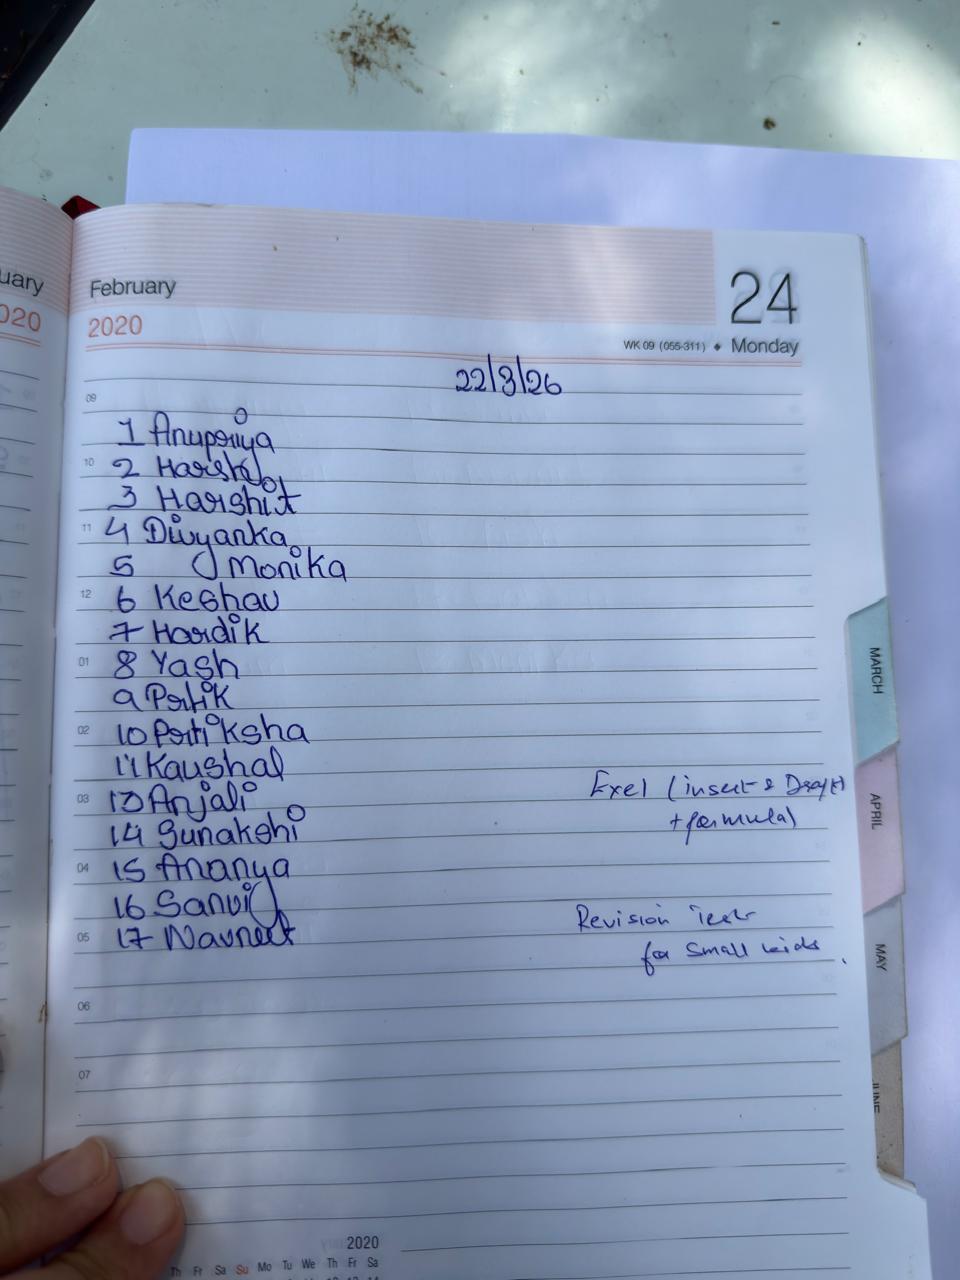 uary
020
February
2020
24
WK 09 (055-311) ◆ Monday
22/3/26
09
1 Anupriya
10
2 Harsh
3 Harshit
11
4 Divyanka
5 Monika
12
6 Keshav
7 Hardik
01
8 Yash
9 Pritik
02
10 Pritiksha
11 Kaushal
Exel (insert & Draft)
03
13 Anjali
+ formula)
14 Gunakshi
04
15 Ananya
16 Sanvi
Revision Test
05
17 Navneet
for small kids.
06
07
MARCH
APRIL
MAY
JUNE
2020
Th Fr Sa Su Mo Tu We Th Fr Sa